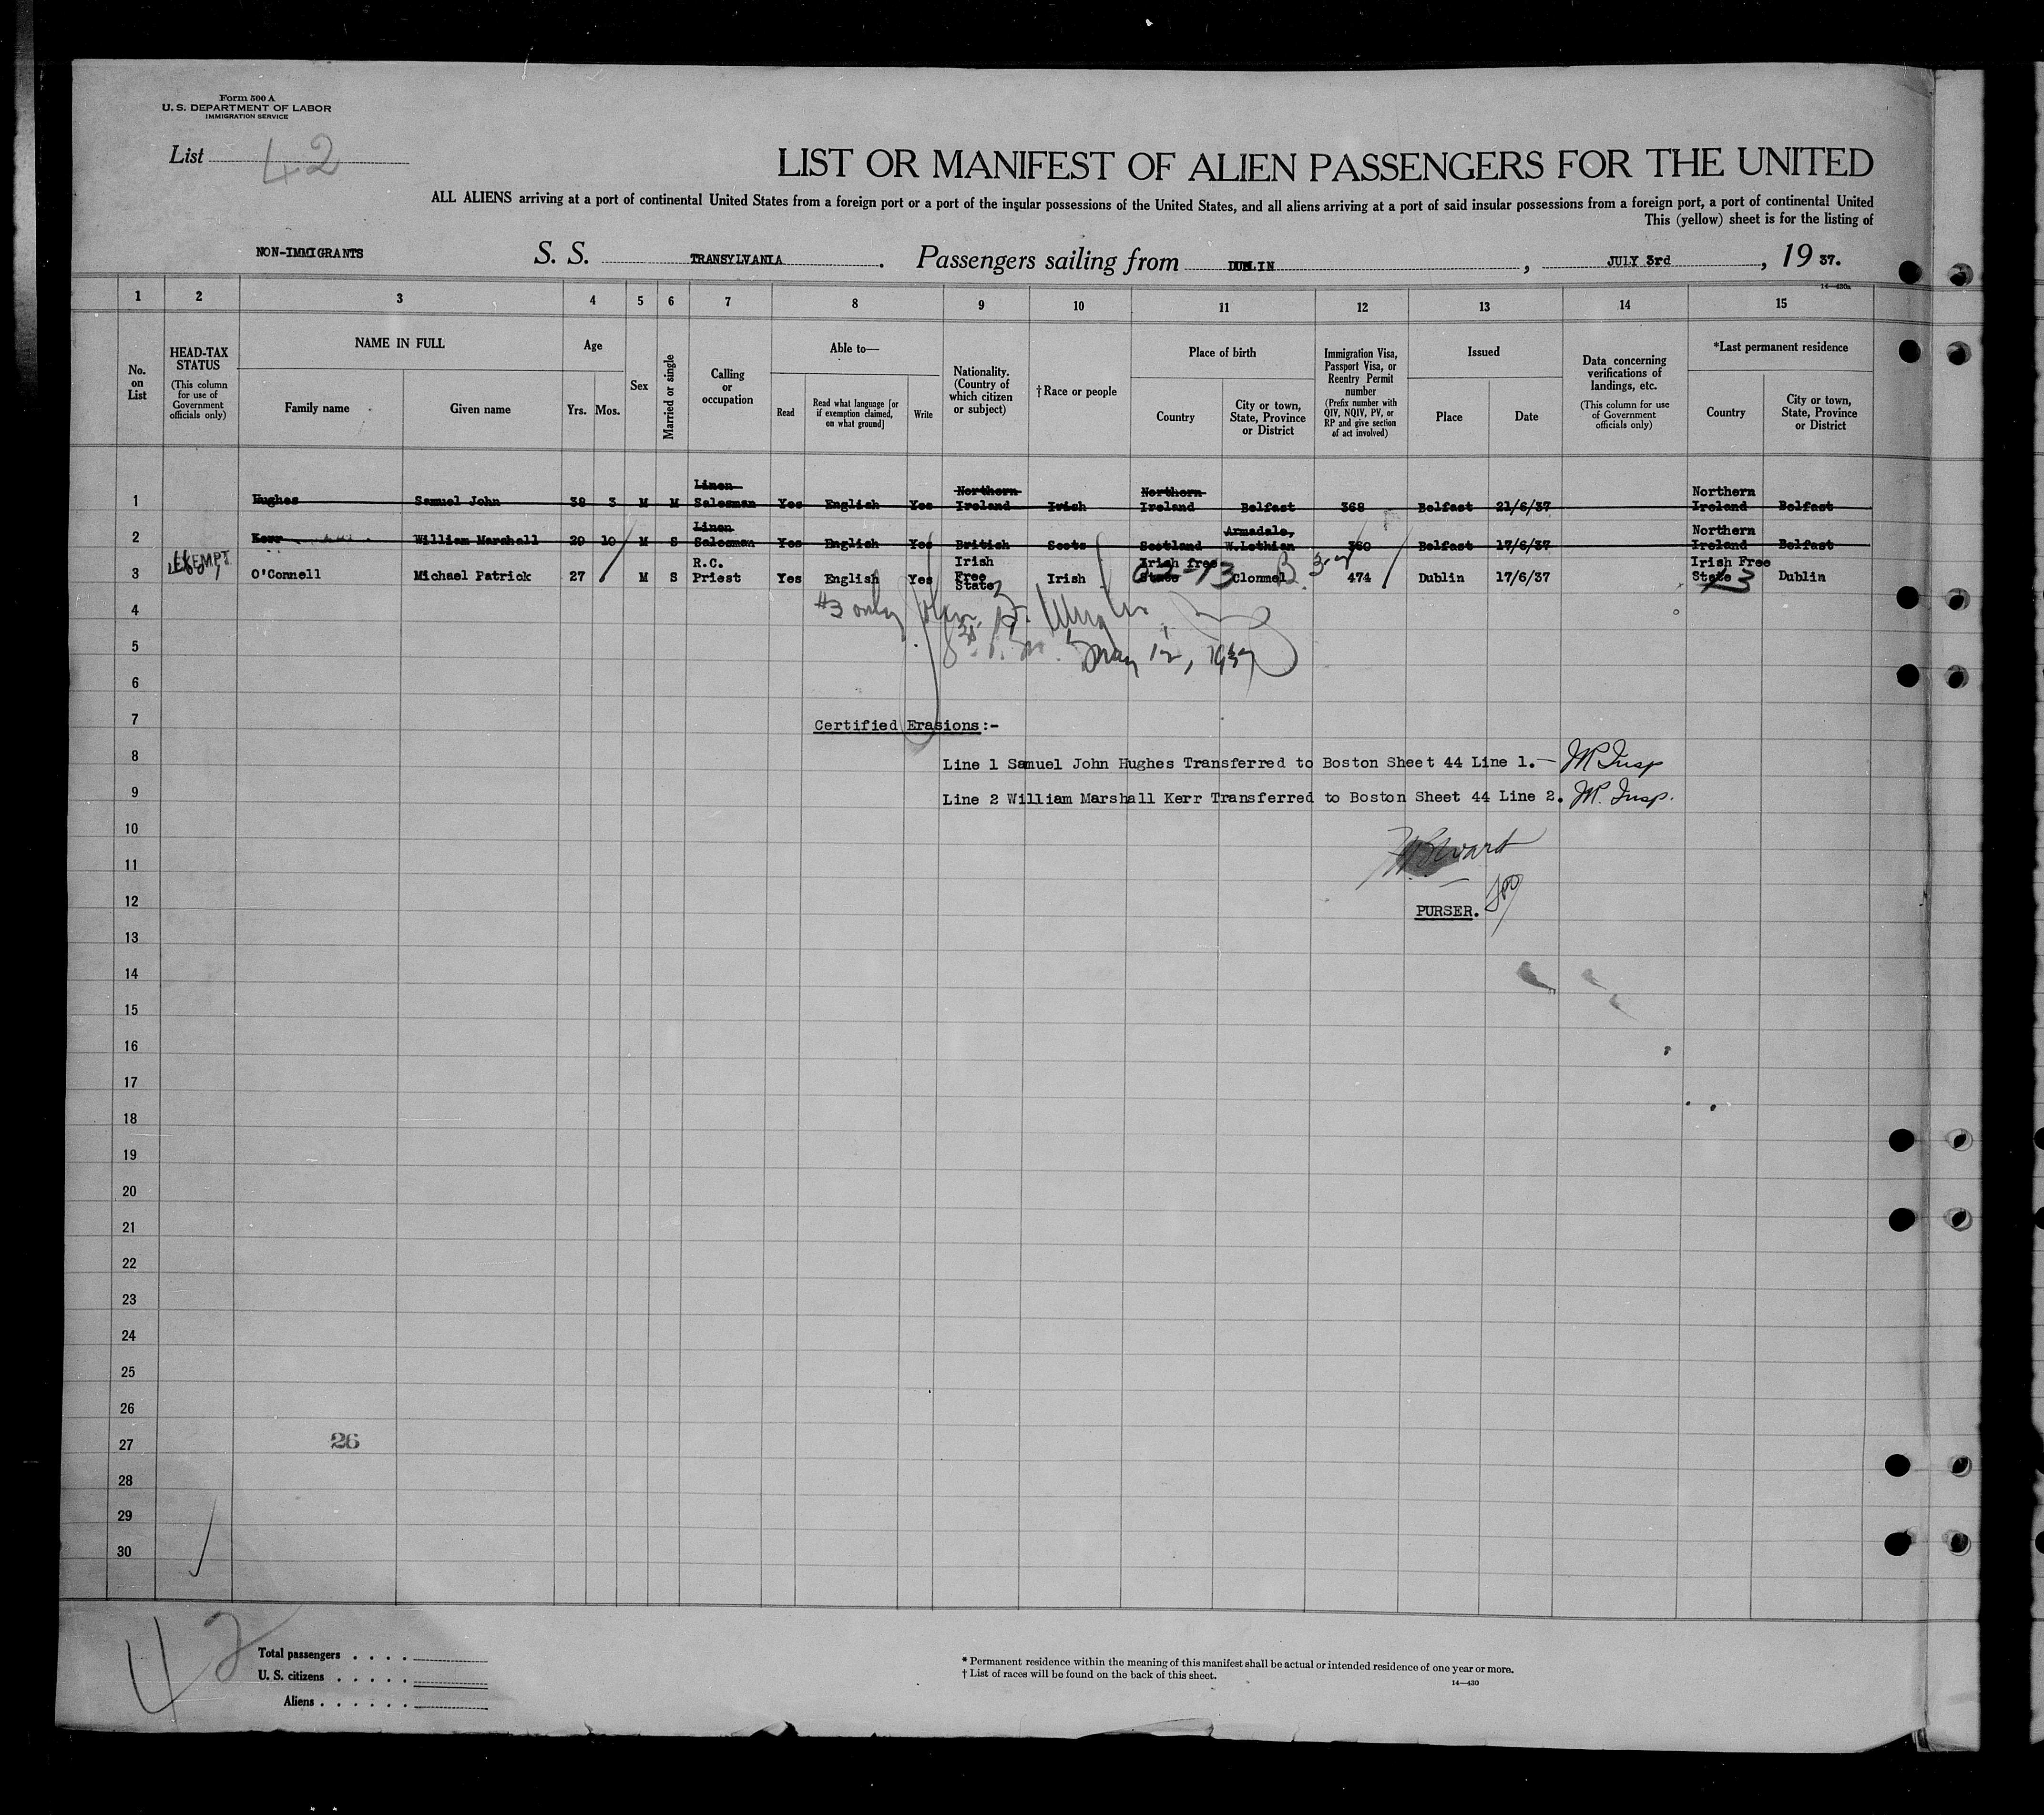 Form 500 A
U. S. DEPARTMENT OF LABOR
IMMIGRATION SERVICE
List 42
LIST OR MANIFEST OF ALIEN PASSENGERS FOR THE UNITED
ALL ALIENS arriving at a port of continental United States from a foreign port or a port of the insular possessions of the United States, and all aliens arriving at a port of said insular possessions from a foreign port, a port of continental United
This (yellow) sheet is for the listing of
NON-IMMIGRANTS S. S. TRANSYLVANIA. Passengers sailing from DUBLIN, JULY 3rd, 19 37.
14—430a
1 2 3 4 5 6 7 8 9 10 11 12 13 14 15
No. on List
HEAD-TAX STATUS
(This column for use of Government officials only)
NAME IN FULL
Family name Given name
Age
Yrs. Mos.
Sex
Married or single
Calling or occupation
Able to—
Read
Read what language [or if exemption claimed, on what ground]
Write
Nationality. (Country of which citizen or subject)
† Race or people
Place of birth
Country
City or town, State, Province or District
Immigration Visa, Passport Visa, or Reentry Permit number
(Prefix number with QIV, NQIV, PV, or RP and give section of act involved)
Issued
Place Date
Data concerning verifications of landings, etc.
(This column for use of Government officials only)
*Last permanent residence
Country
City or town, State, Province or District
1 Hughes Samuel John 38 3 M M Linen Salesman Yes English Yes Northern Ireland Irish Northern Ireland Belfast 368 Belfast 21/6/37 Northern Ireland Belfast
2 Kerr William Marshall 29 10 M S Linen Salesman Yes English Yes British Scots Scotland Armadale, W.Lothian 360 Belfast 17/6/37 Northern Ireland Belfast
EXEMPT
3 O'Connell Michael Patrick 27 M S R.C. Priest Yes English Yes Irish Free State Irish Irish free State Clonmel 474 Dublin 17/6/37 Irish Free State Dublin
#3 only
4
5
6
7
Certified Erasions:-
8 Line 1 Samuel John Hughes Transferred to Boston Sheet 44 Line 1.— JR Insp
9 Line 2 William Marshall Kerr Transferred to Boston Sheet 44 Line 2. JR. Insp.
10
11
12 PURSER.
13
14
15
16
17
18
19
20
21
22
23
24
25
26
27 26
28
29
30
42
Total passengers . . . .
U. S. citizens . . . . .
Aliens . . . . . .
* Permanent residence within the meaning of this manifest shall be actual or intended residence of one year or more.
† List of races will be found on the back of this sheet.
14—430